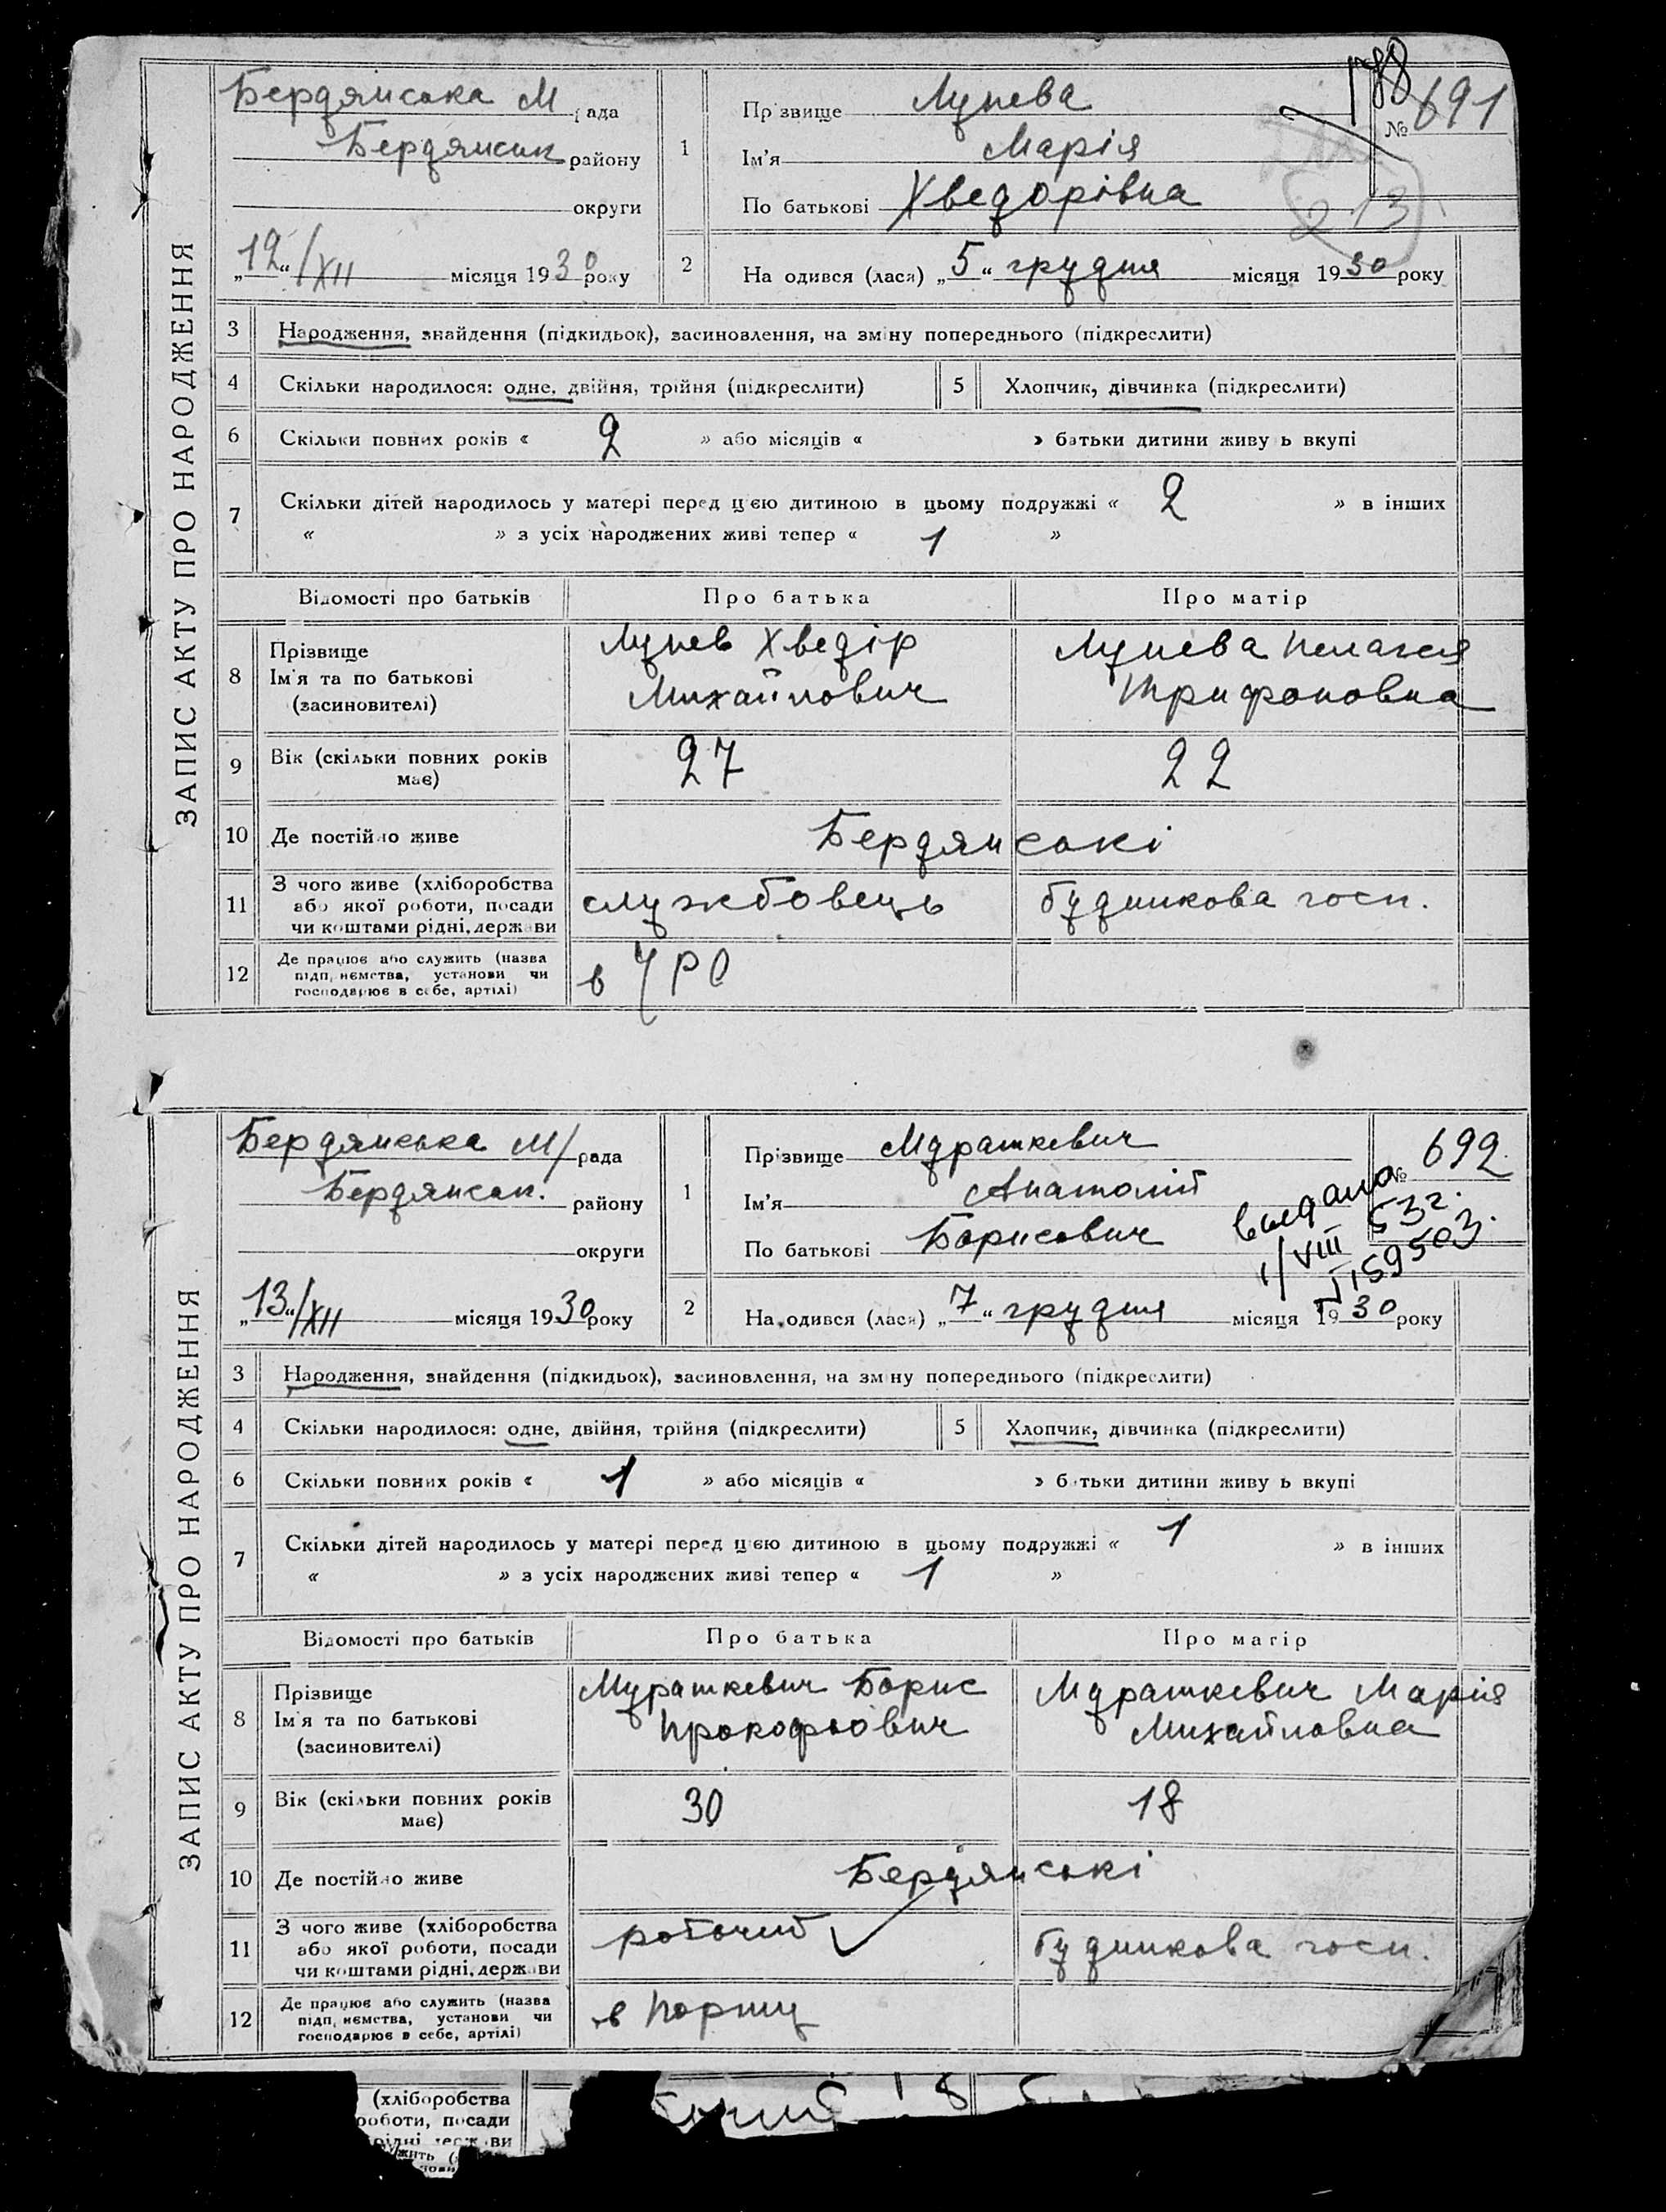 ЗАПИС АКТУ ПРО НАРОДЖЕННЯ
Бердянська М рада
Бердянськ району
округи
„12“/XII місяця 1930 року
1
Прізвище Лунева
Ім'я Марія
По батькові Хведорівна
188
№ 691
213
2
На одився (лася) „5“ грудня місяця 1930 року
3 Народження, знайдення (підкидьок), засиновлення, на зміну попереднього (підкреслити)
4 Скільки народилося: одне, двійня, трійня (підкреслити) 5 Хлопчик, дівчинка (підкреслити)
6 Скільки повних років « 2 » або місяців « » батьки дитини живу ь вкупі
7 Скільки дітей народилось у матері перед цією дитиною в цьому подружжі « 2 » в інших
« » з усіх народжених живі тепер « 1 »
Відомості про батьків Про батька Про матір
8 Прізвище
Ім'я та по батькові
(засиновителі)
Лунев Хведір
Михайлович
Лунева Пелагея
Трифоновна
9 Вік (скільки повних років
має)
27 22
10 Де постійно живе Бердянські
11 З чого живе (хліборобства
або якої роботи, посади
чи коштами рідні, держави
службовець будинкова госп.
12 Де працює або служить (назва
підп, иємства, установи чи
господарює в себе, артілі)
в УРС
ЗАПИС АКТУ ПРО НАРОДЖЕННЯ
Бердянська М/ рада
Бердянськ. району
округи
„13“/XII місяця 1930 року
1
Прізвище Мурашкевич
Ім'я Анатолій
По батькові Борисович
№ 692
выдано
1/VIII 53г.
159503.
2
На одився (лася) „7“ грудня місяця 1930 року
3 Народження, знайдення (підкидьок), засиновлення, на зміну попереднього (підкреслити)
4 Скільки народилося: одне, двійня, трійня (підкреслити) 5 Хлопчик, дівчинка (підкреслити)
6 Скільки повних років « 1 » або місяців « » батьки дитини живу ь вкупі
7 Скільки дітей народилось у матері перед цією дитиною в цьому подружжі « 1 » в інших
« » з усіх народжених живі тепер « 1 »
Відомості про батьків Про батька Про матір
8 Прізвище
Ім'я та по батькові
(засиновителі)
Мурашкевич Борис
Прокофьович
Мурашкевич Марія
Михайловна
9 Вік (скільки повних років
має)
30 18
10 Де постійно живе Бердянські
11 З чого живе (хліборобства
або якої роботи, посади
чи коштами рідні, держави
робочий будинкова госп.
12 Де працює або служить (назва
підп, иємства, установи чи
господарює в себе, артілі)
в порту
(хліборобства
роботи, посади